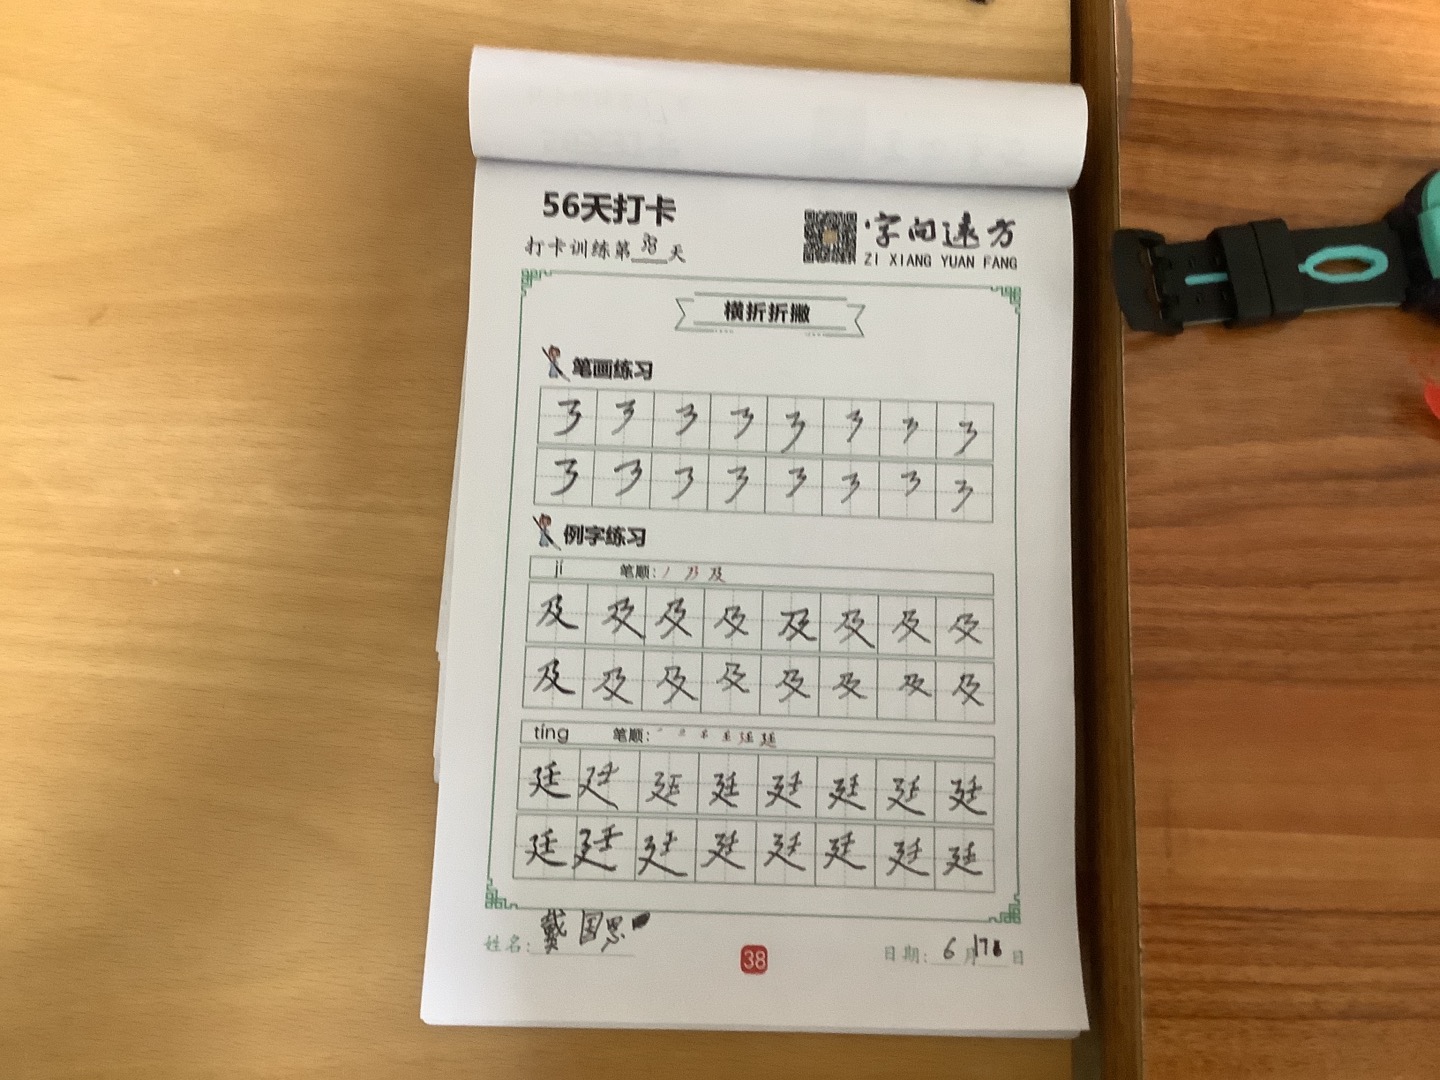 56天打卡
字向远方
打卡训练第38天
ZI XIANG YUAN FANG
横折折撇
笔画练习
例字练习
jí 笔顺：丿 乃 及
及 及 及 及 及 及 及 及
及 及 及 及 及 及 及 及
tíng 笔顺：
廷 廷 廷 廷 廷 廷 廷 廷
廷 廷 廷 廷 廷 廷 廷 廷
姓名：戴国恩
38
日期：6月17日